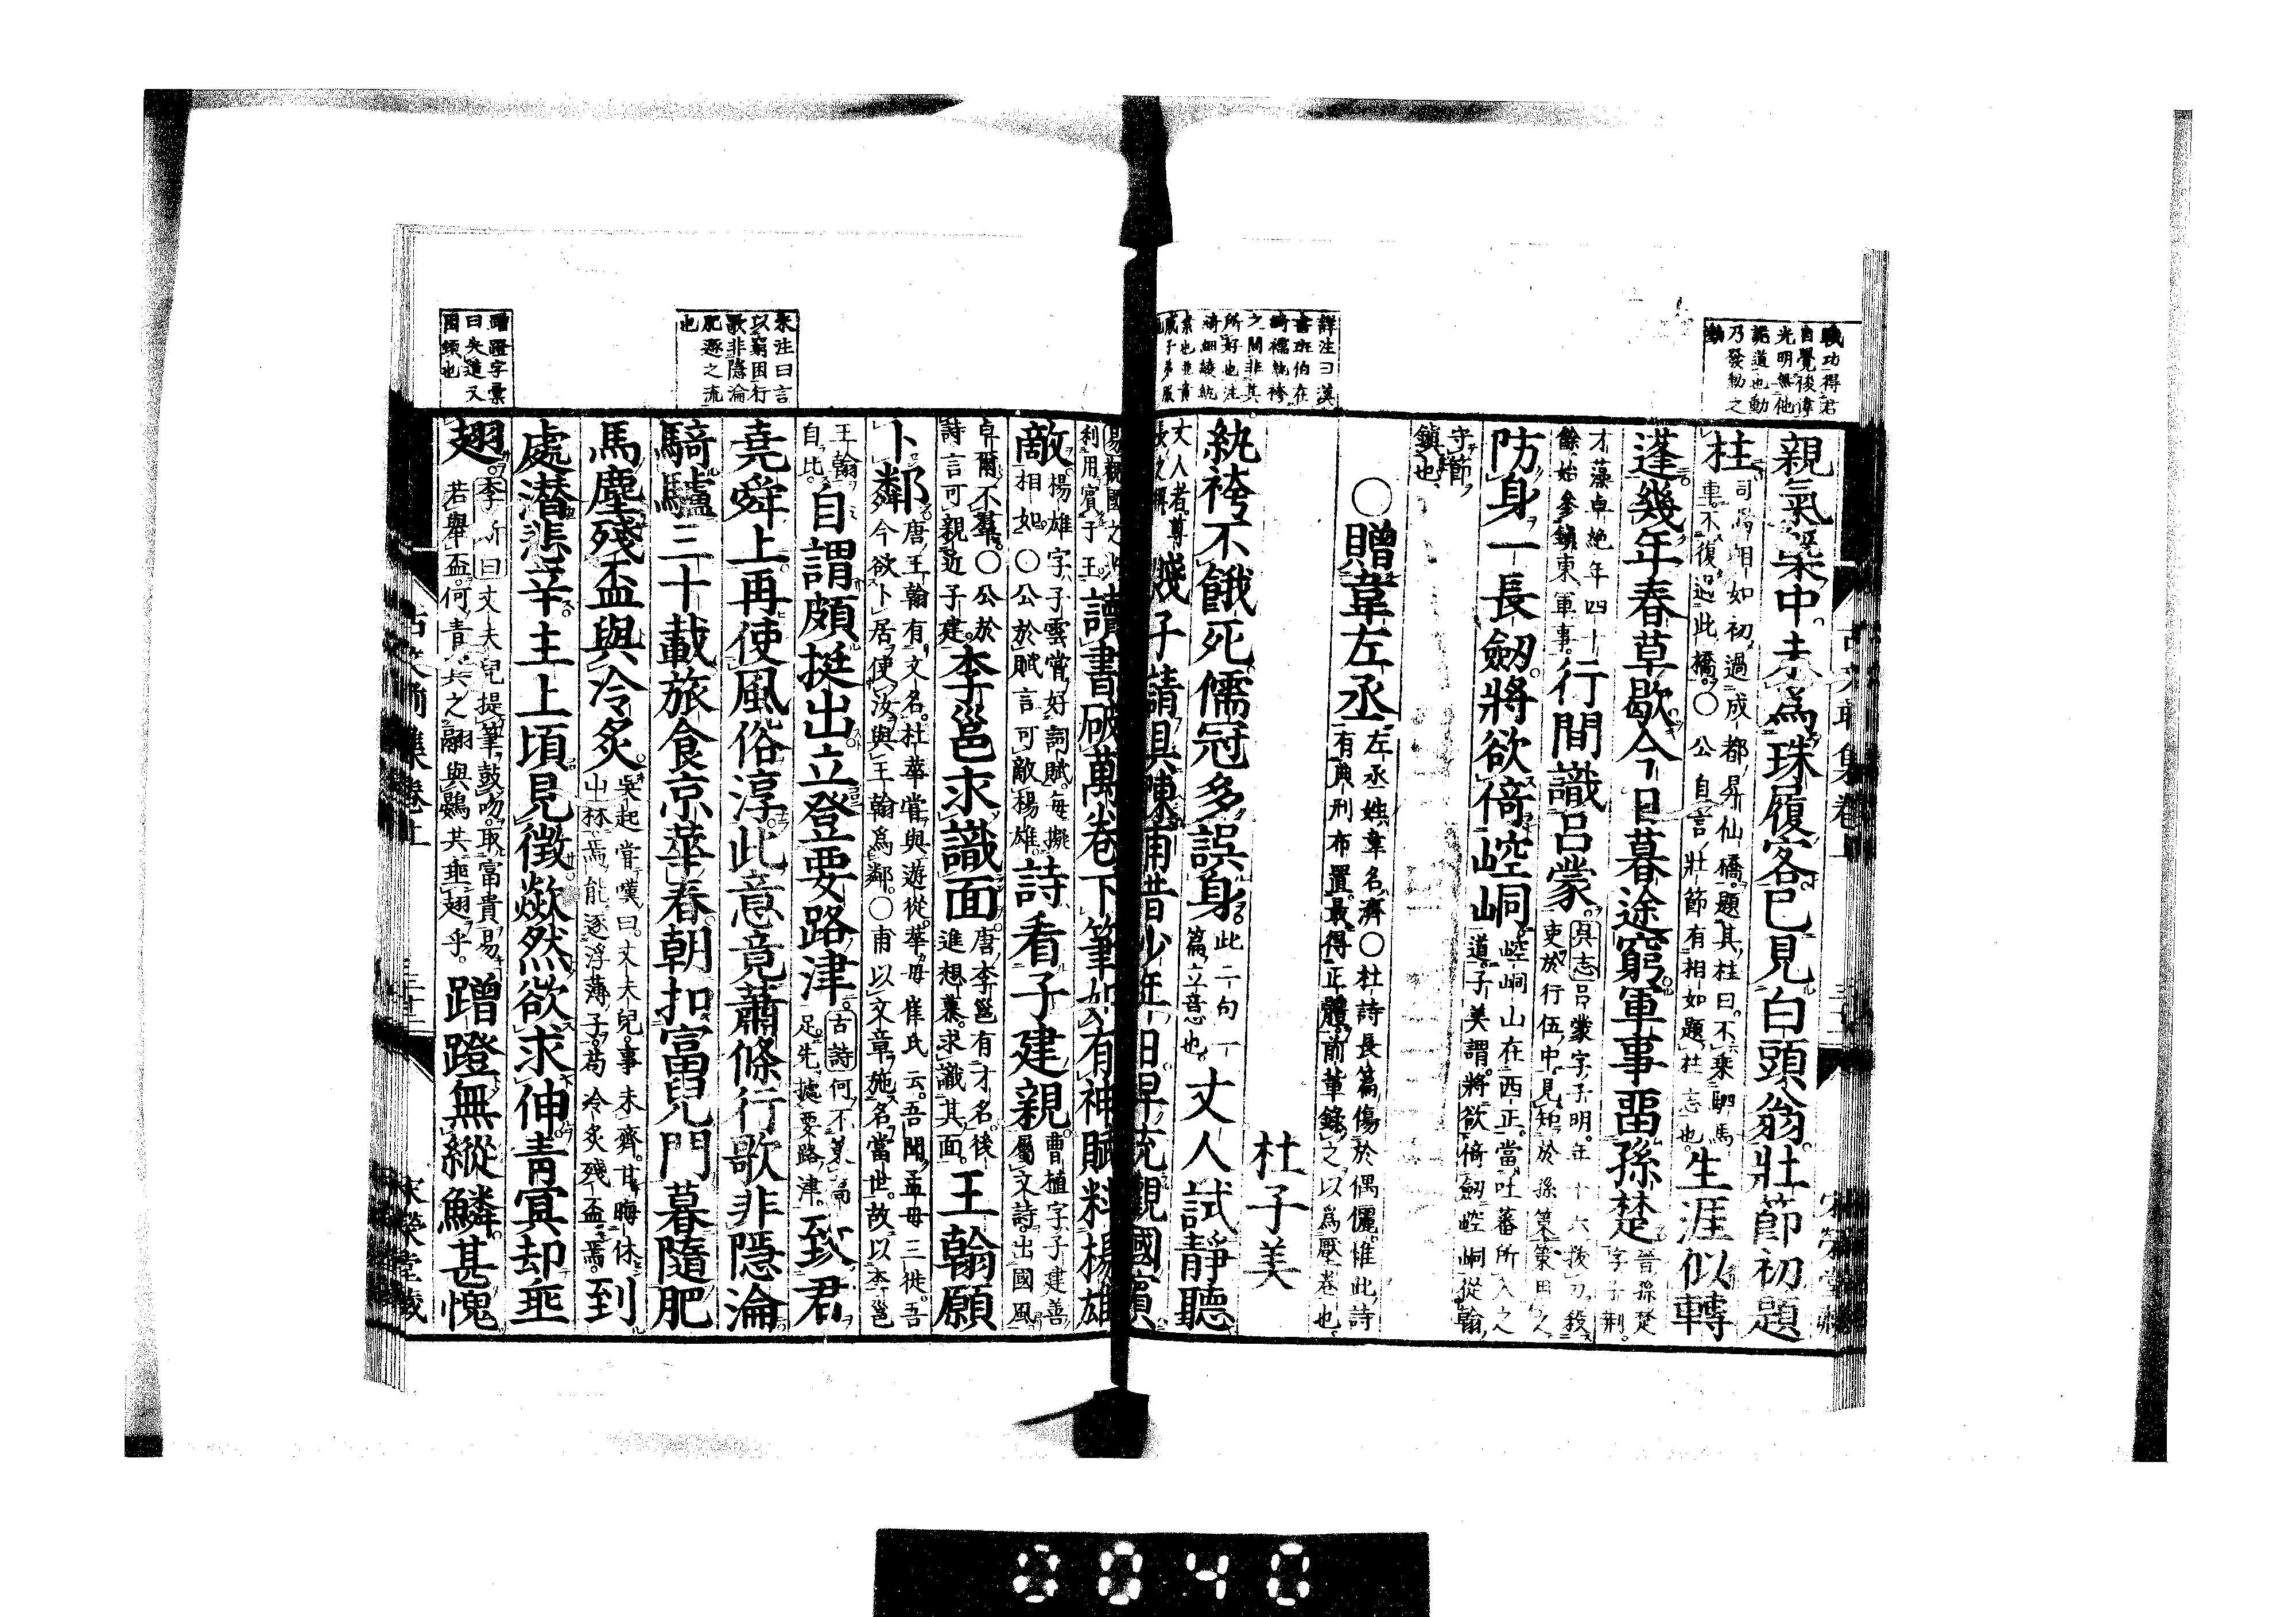 職功得君
自覺後偉
光明無他
謟道也動
乃發動之
動
親氣槩中未爲珠履客已見白頭翁壯節初題
柱司馬相如初過成都昇仙橋題其柱曰不乘駟馬
車不復過此橋〇公自言壯節有相如題柱志也生涯似轉
蓬幾年春草歇今日暮途窮軍事畱孫楚晉孫楚字子荆
才藻卓絶年四十
餘始參鎮東軍事行間識呂蒙吳志呂蒙字子明年十六拔刀殺
吏於行伍中見知於孫策策用之
防身一長劒將欲倚崆峒崆峒山在西正當吐蕃所入之
道子美謂將欲倚劒崆峒從翰
守節
鎮也
〇贈韋左丞左丞姓韋名濟〇杜詩長篇傷於偶儷惟此詩
有典刑布置最得正體前輩錄之以爲壓卷也
杜子美
詳注曰漢
書班伯在
綺襦紈袴
之間非其
所好也注
綺細綾紈
素也並貴
戚子弟服
紈袴不餓死儒冠多誤身此二句一
篇立意也丈人試靜聽
丈人者尊
賤子請具陳甫昔少年日早充觀國賓
易觀國之
利用賓于王讀書破萬卷下筆如有神賦料楊雄
敵楊雄字子雲嘗好詞賦每擬
相如〇公於賦言可敵楊雄詩看子建親曹植字子建善
屬文詩出國風
卓爾不羣〇公於
詩言可親近子建李邕求識面唐李邕有才名後
進想慕求識其面王翰願
卜鄰唐王翰有文名杜華嘗與遊從華母崔氏云吾聞孟母三徙吾
今欲卜居使汝與王翰爲鄰〇甫以文章施名當世故以李邕
王翰
自比自謂頗挺出立登要路津古詩何不策高
足先據要路津致君
堯舜上再使風俗淳此意竟蕭條行歌非隱淪
朱注曰言
以窮困行
歌非隱淪
肥遯之流
也
騎驢三十載旅食京華春朝扣富兒門暮隨肥
馬塵殘盃與冷炙吳起嘗嘆曰丈夫兒事未齊甘晦休
山林焉能逐浮薄子苟冷炙殘盃焉到
處潜悲辛主上頃見徵欻然欲求伸青冥却垂
翅李斯曰丈夫兒提筆鼓吻取富貴易
若舉盃何青冥之翮與鷃共垂翅乎蹭蹬無縱鱗甚愧
蹭蹬字彙
曰失道又
困頓也